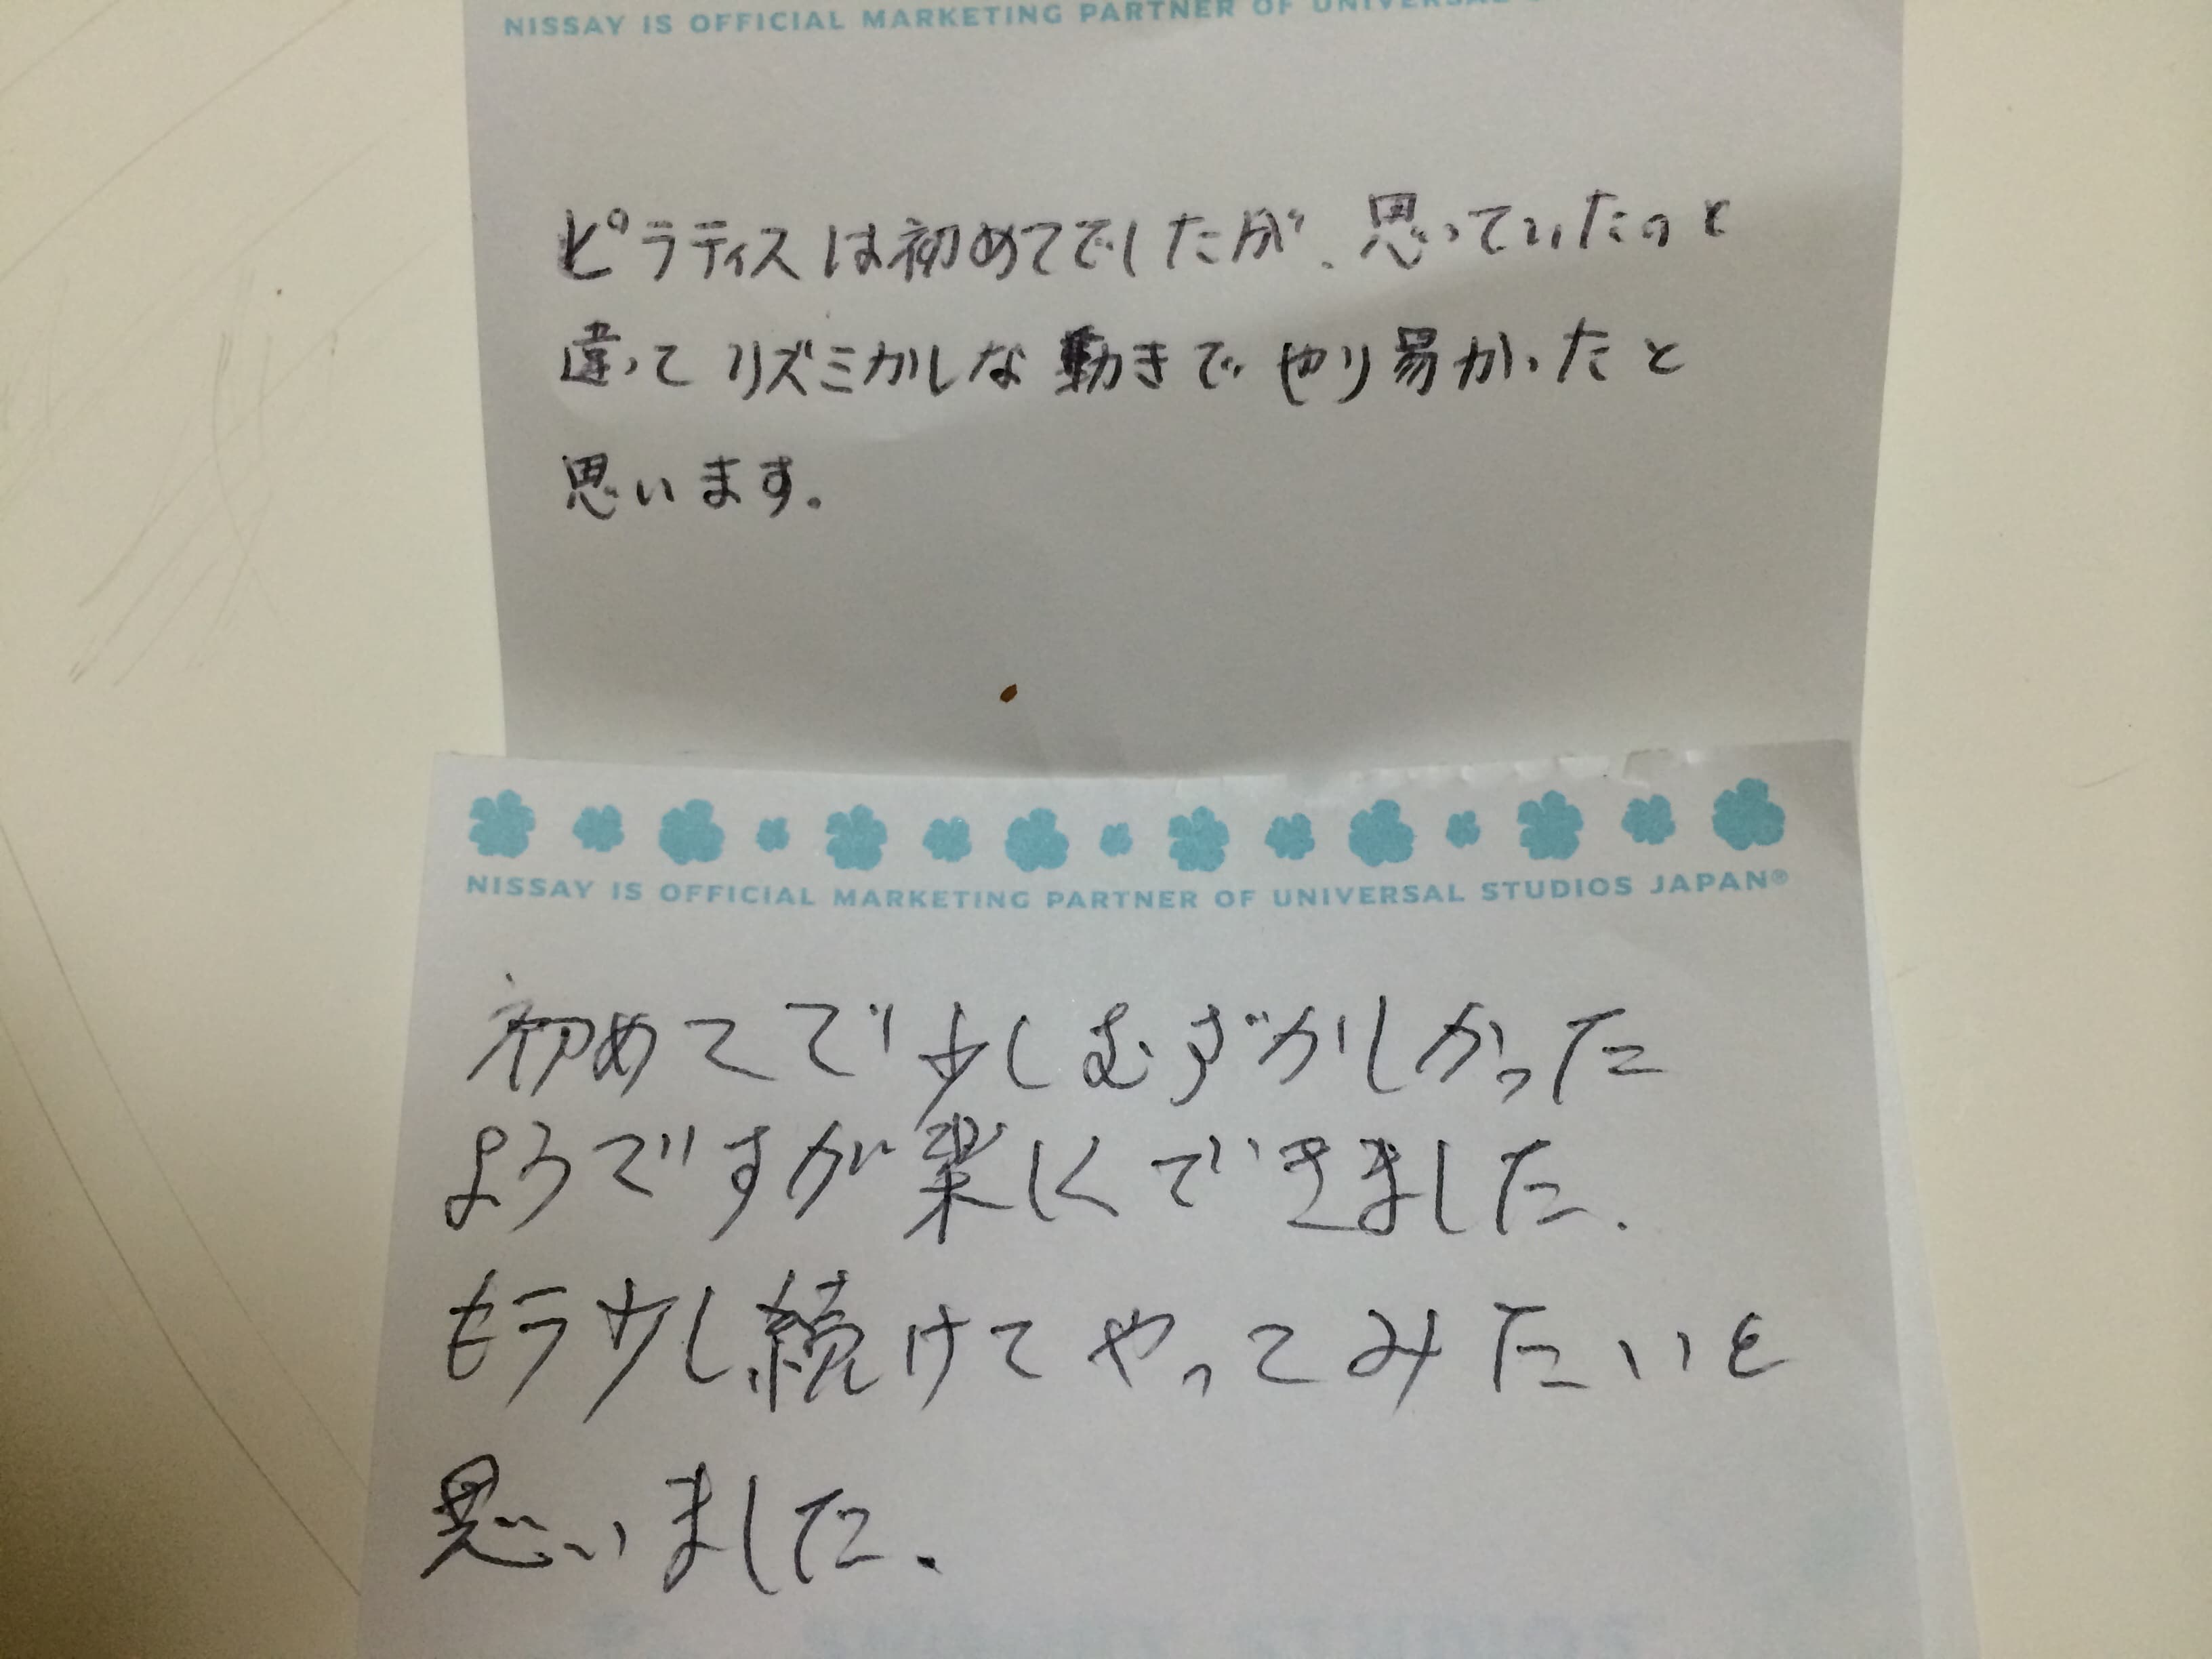 NISSAY IS OFFICIAL MARKETING PARTNER OF UNIVERSAL
ピラティスは初めてでしたが、思っていたのと
違ってリズミカルな動きでやり易かったと
思います。
NISSAY IS OFFICIAL MARKETING PARTNER OF UNIVERSAL STUDIOS JAPAN®
初めてで少しむずかしかった
ようですが楽にできました.
もう少し続けてやってみたいと
思いました.